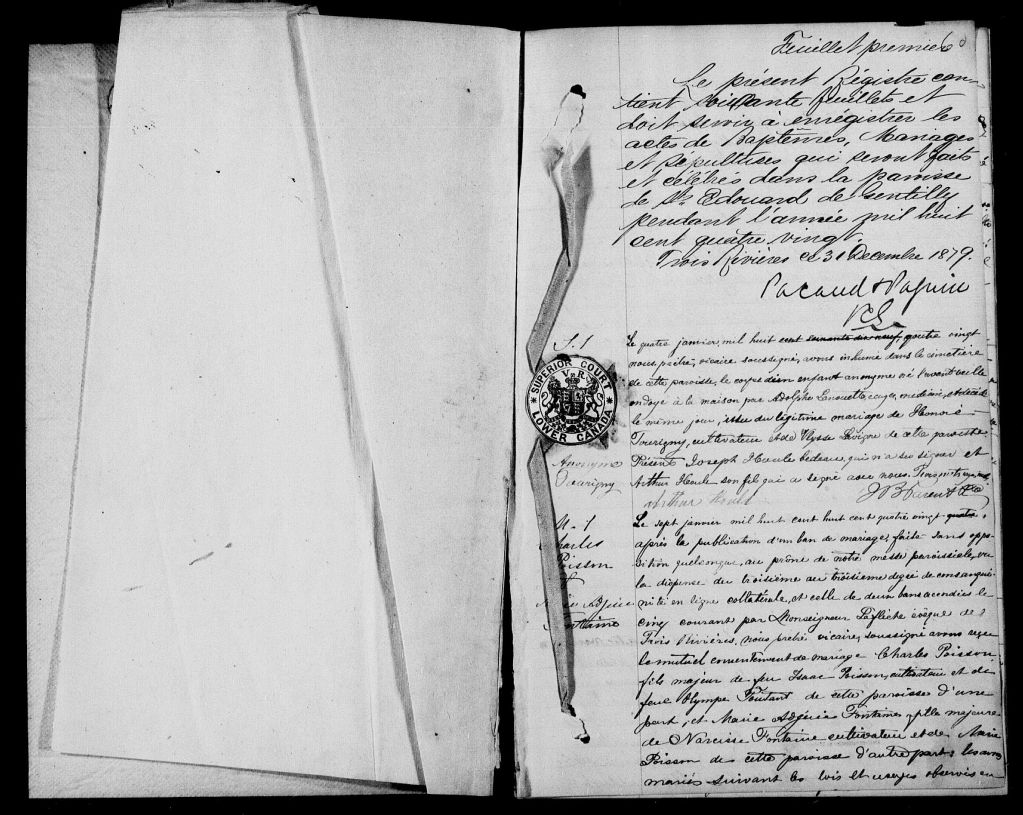 Feuillet premier
Le présent Régistre con-
tient soixante feuillets et
doit servir à enrégistrer les
actes de Baptêmes, Mariages
et Sépultures qui seront faits
et célébrés dans la paroisse
de St Edouard de Gentilly
pendant l'année mil huit
cent quatre vingt.
Trois Rivières ce 31 Decembre 1879.
Pacaud & Paquin
PCS.
S. 1
Anonyme
Tourigny
Le quatre janvier, mil huit cent soixante dix neuf quatre vingt
nous prêtre, vicaire soussigné, avons inhumé dans le cimetière
de cette paroisse, le corps d'un enfant anonyme né l'avant veille
ondoyé à la maison par Adolphe médecin, et décédé
le même jour, issu du légitime mariage de Honoré
Tourigny, cultivateur et de Ulysse Lavigne de cette paroisse.
Présent Joseph Houle bedeau, qui n'a su signer et
Arthur Houle son fils qui a signé avec nous.
Arthur Houle
SUPERIOR COURT
V R
LOWER CANADA
M. 1
Charles
Poisson
&
Marie Adjuie
Fontaine
Le sept janvier mil huit cent huit cent quatre vingt quatre,
après la publication d'un ban de mariage, faite sans oppo-
sition quelconque, au prône de notre messe paroissiale, vu
la dispense du troisième au troisième degré de consangui-
nité en ligne collatérale, et celle de deux bans accordés le
cinq courant par Monseigneur Laflèche évêque des
Trois Rivières, nous prêtre vicaire, soussigné avons reçu
le mutuel consentement de mariage Charles Poisson
fils majeur de feu Isaac Poisson, cultivateur et de
feue Olympe Toutant de cette paroisse d'une
part, et Marie Adjuie Fontaine, fille majeure
de Narcisse Fontaine cultivateur et de Marie
Poisson de cette paroisse d'autre part & les avons
mariés suivant les lois et usages observés en